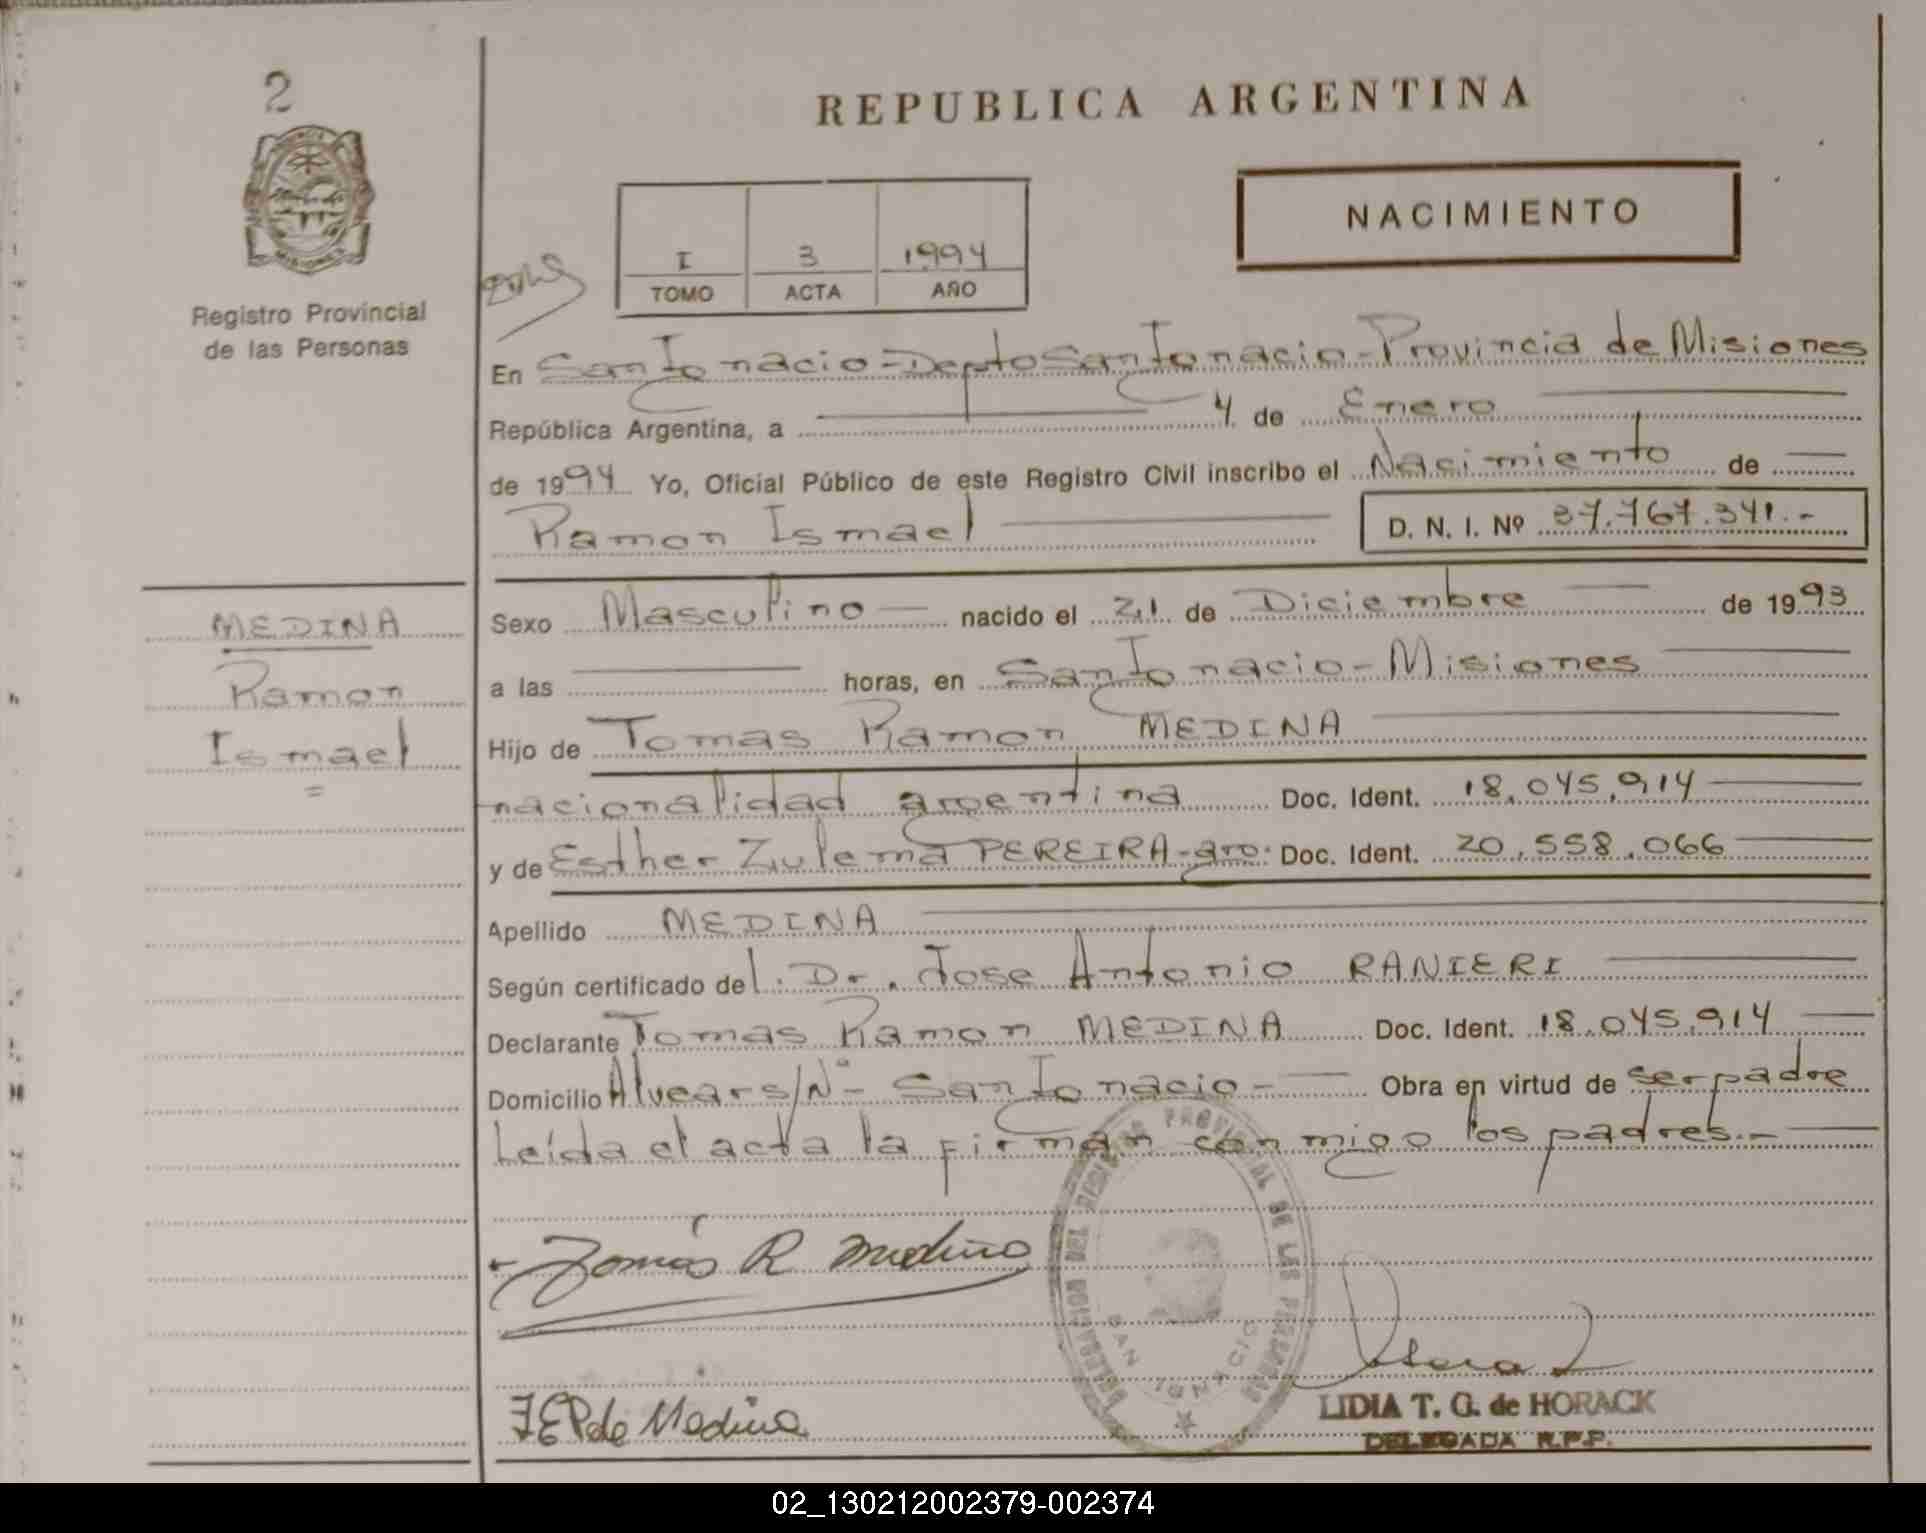 2
REPUBLICA ARGENTINA
NACIMIENTO
I 3 1994
TOMO ACTA AÑO
MISIONES
Registro Provincial
de las Personas
En San Ignacio - Depto San Ignacio - Provincia de Misiones
República Argentina, a 4 de Enero
de 1994 Yo, Oficial Público de este Registro Civil inscribo el Nacimiento de
Ramon Ismael D. N. I. Nº 37.767.341.-
MEDINA
Ramon
Ismael
Sexo Masculino nacido el 21 de Diciembre de 1993
a las horas, en San Ignacio - Misiones
Hijo de Tomas Ramon MEDINA
nacionalidad argentina Doc. Ident. 18.045.914
y de Esther Zulema PEREIRA - arg. Doc. Ident. 20.558.066
Apellido MEDINA
Según certificado del Dr. Jose Antonio RANIERI
Declarante Tomas Ramon MEDINA Doc. Ident. 18.045.914
Domicilio Alvear s/Nº - San Ignacio - Obra en virtud de ser padre
Leída el acta la firman conmigo los padres.-
Tomás R Medina
DELEGACION DEL REGISTRO PROVINCIAL DE LAS PERSONAS
SAN IGNACIO
EP de Medina
LIDIA T. G. de HORACK
DELEGADA R.P.P.
02_130212002379-002374